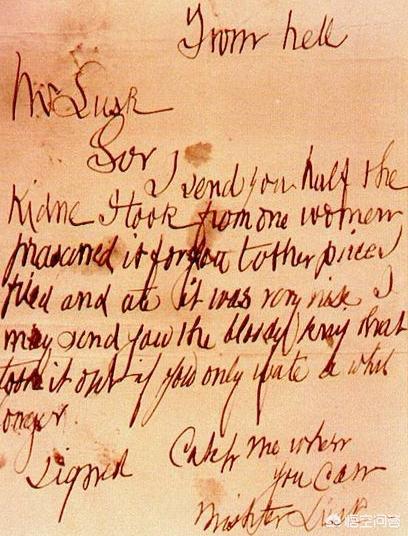 From hell
Mr Lusk
Sor
I send you half the
Kidne I took from one women
prasarved it for you tother piece I
fried and ate it was very nise I
may send you the bloody knif that
took it out if you only wate a whil
longer.
signed
Catch me when
you Can
Mishter Lusk
悟空问答